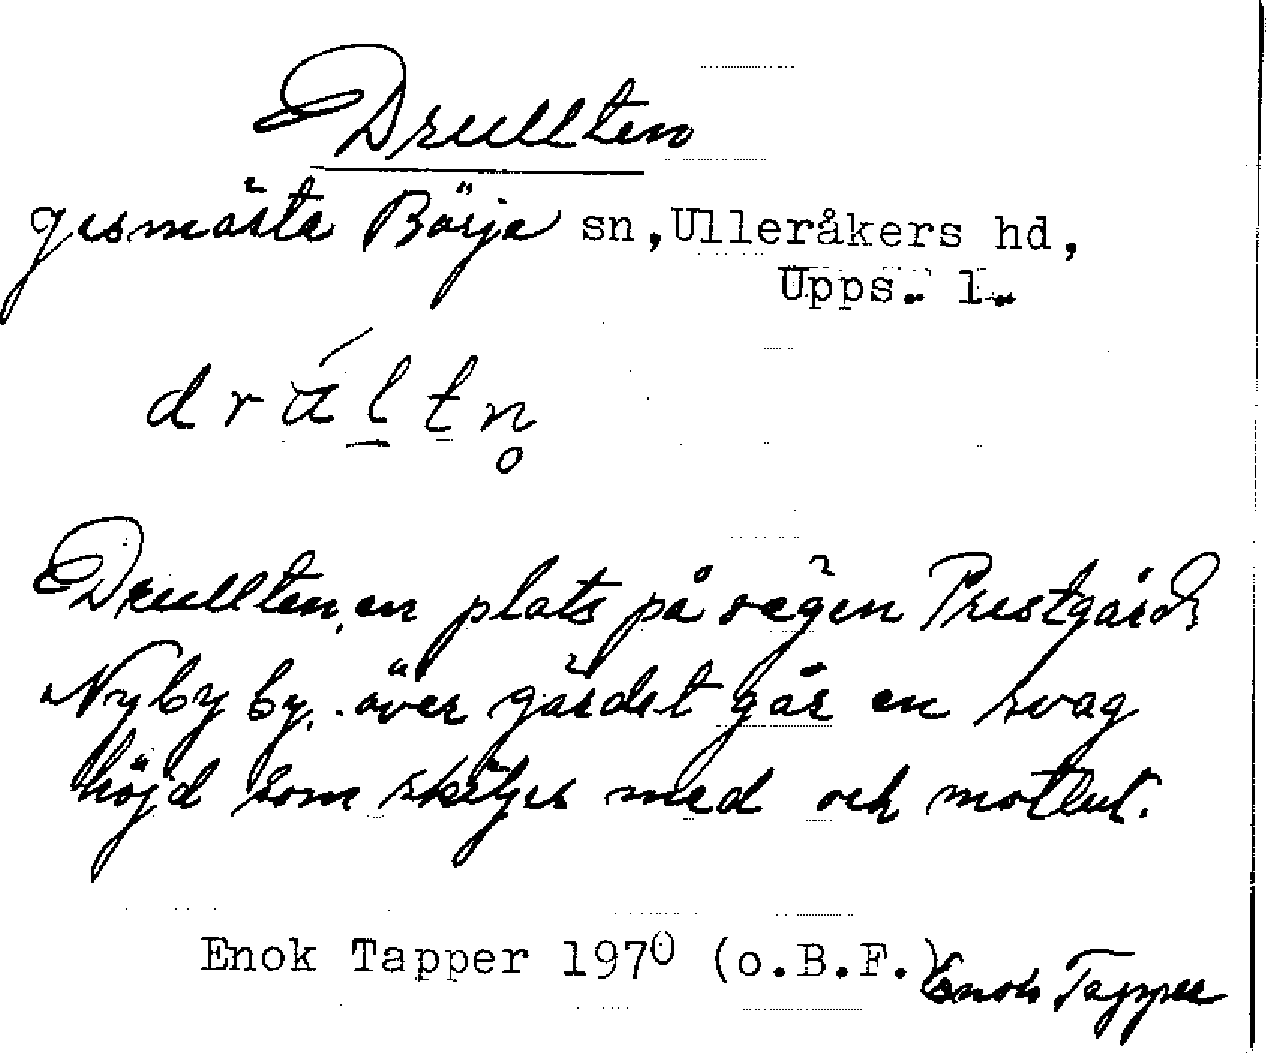 Drullten
gusmästa Börje sn, Ulleråkers hd,
Upps. l.
dráltn̥
Drullten, en plats på vägen Prestgård
Nyby by. över gärdet går en svag
höjd som skiljes med och motlut.
Enok Tapper 1970 (o.B.F.) Enok Tapper